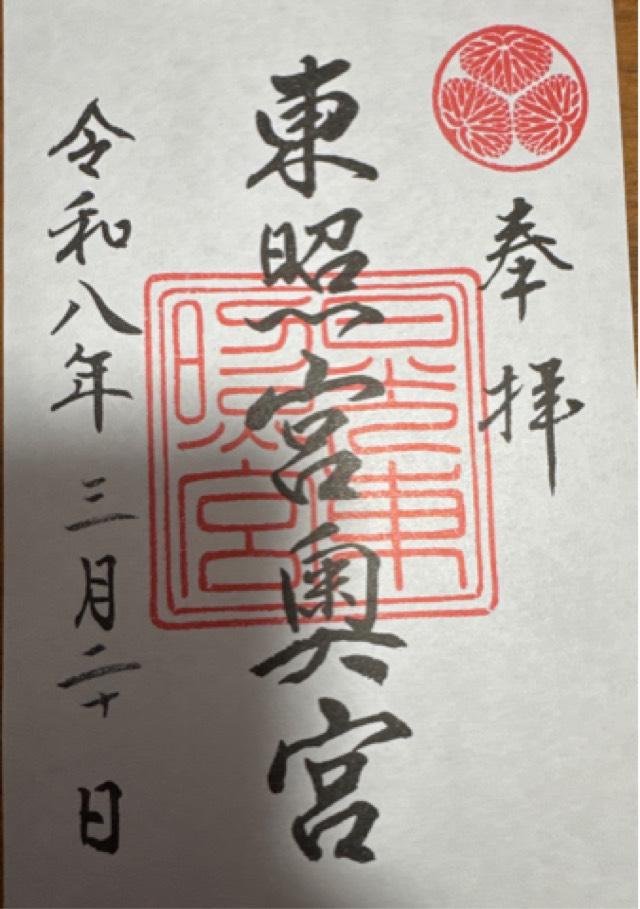 奉拝
東照宮奥宮
日光東照宮
令和八年三月二十日